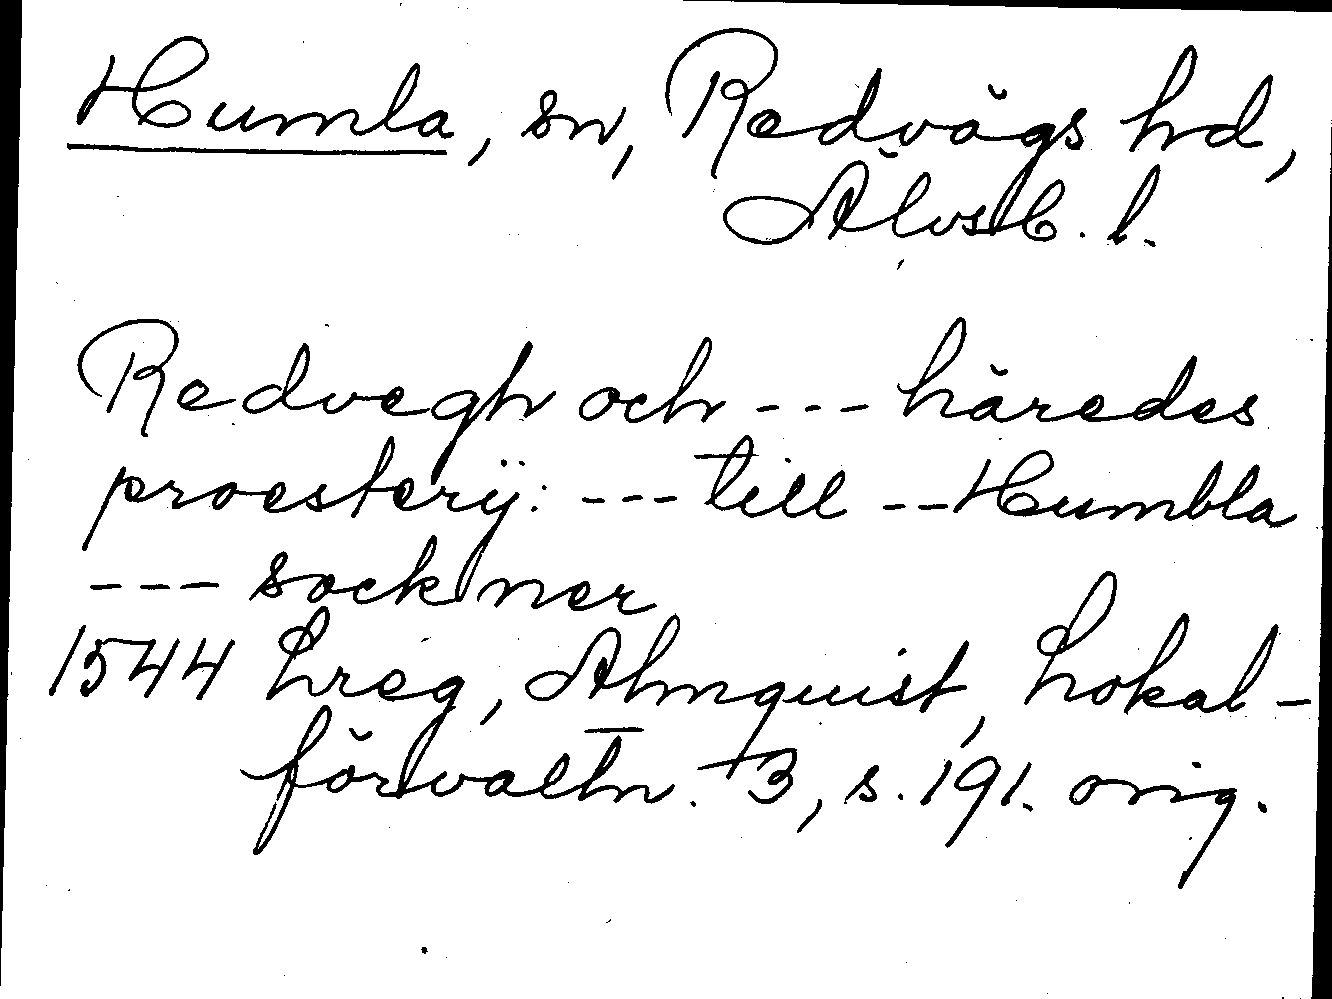 Humla, sn, Redvägs hd,
Älvsb. l.
Redvegh och --- häredes
proesterÿ: --- till -- Humbla
--- sockner
1544 Lreg, Almquist, Lokal-
förvaltn. 3, s. 191. orig.